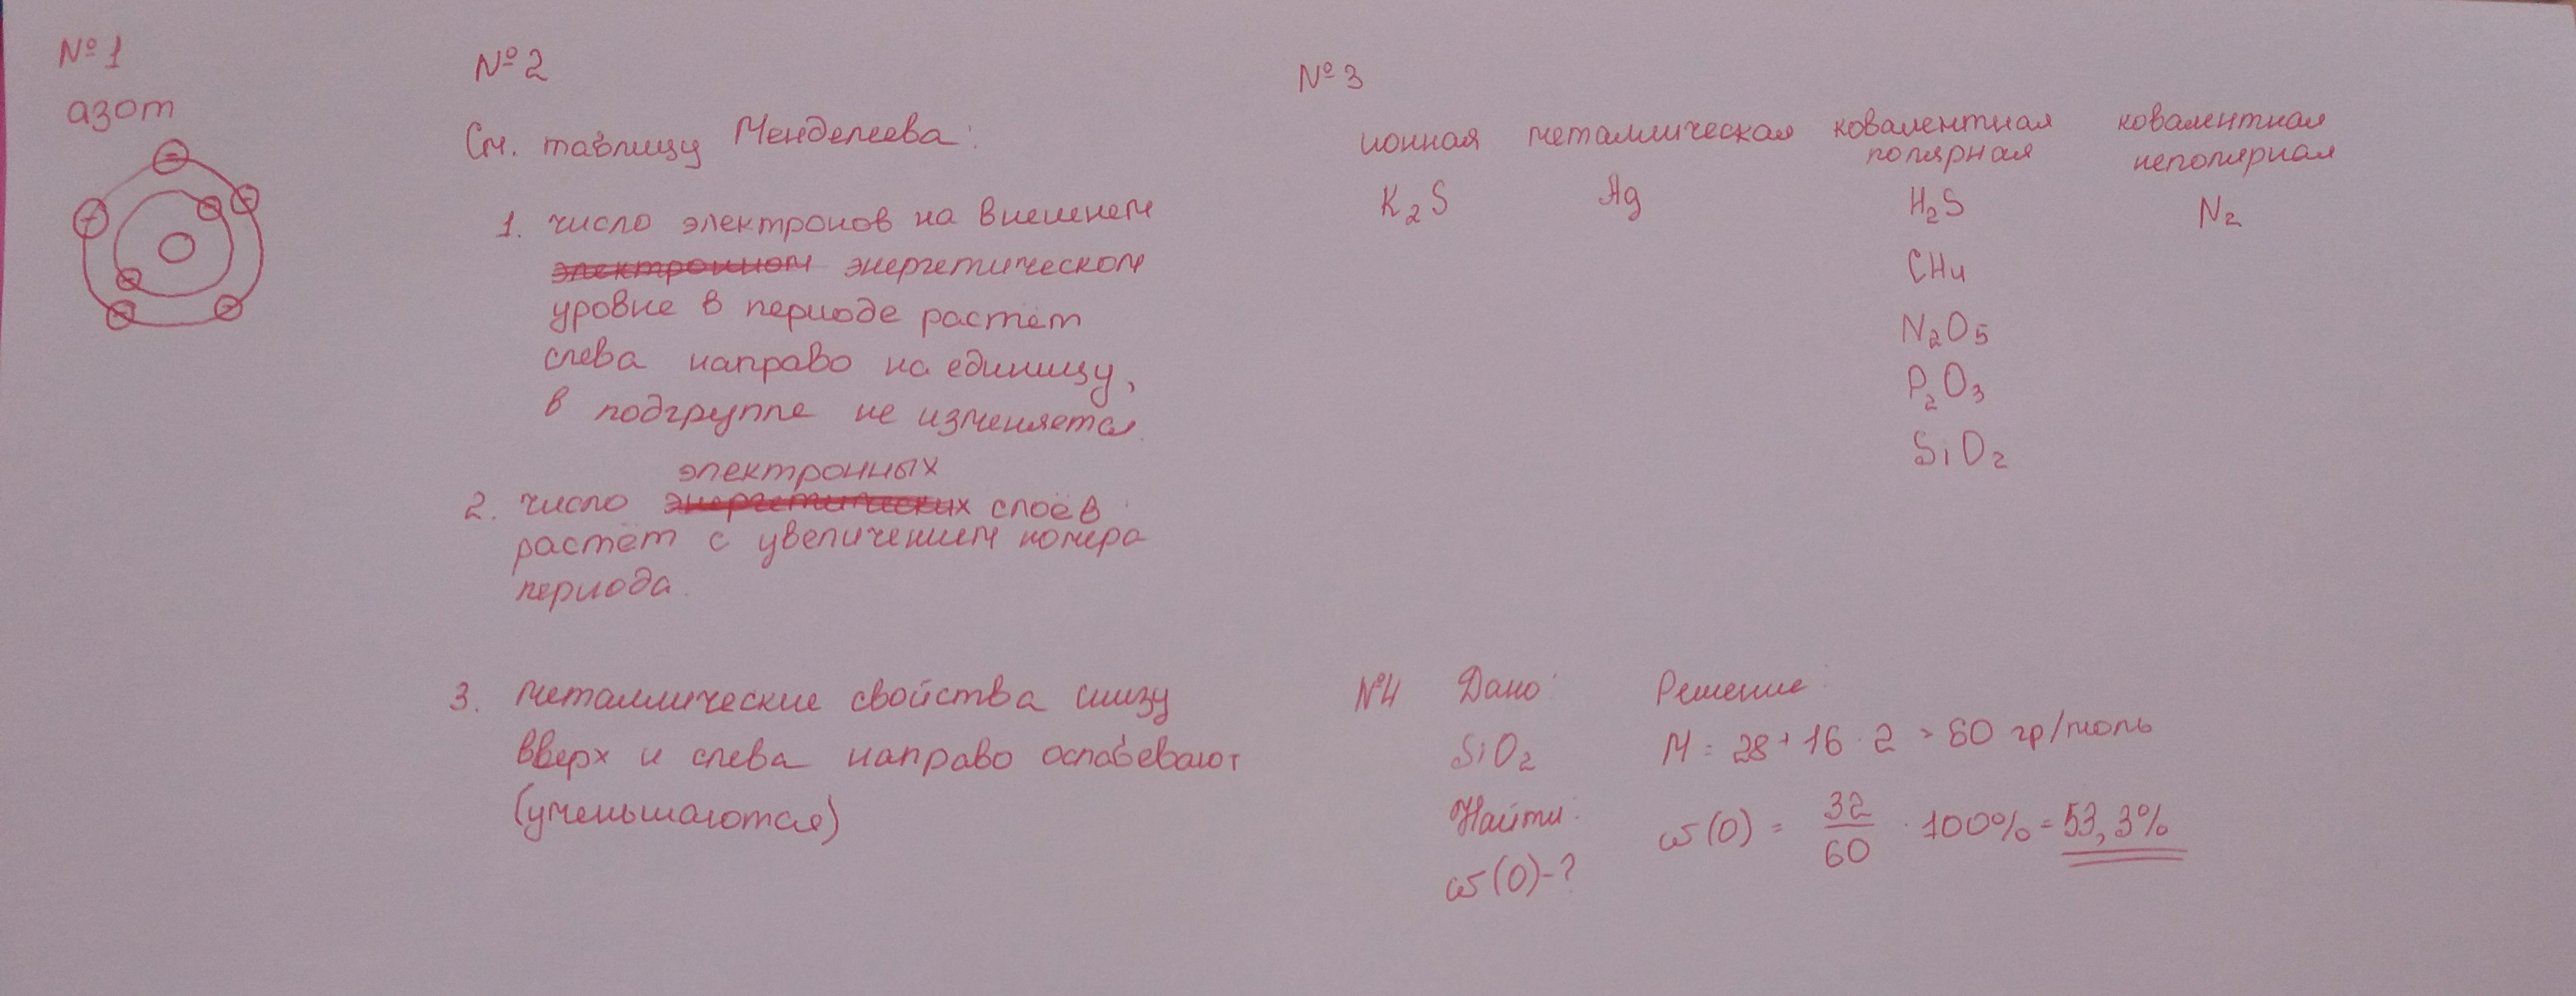 № 1
азот
№ 2
См. таблицу Менделеева:
1. число электронов на внешнем
электронном энергетическом
уровне в периоде растёт
слева направо на единицу,
в подгруппе не изменяется.
электронных
2. число энергетических слоёв
растёт с увеличением номера
периода.
3. металлические свойства снизу
вверх и слева направо ослабевают
(уменьшаются)
№ 3
ионная металлическая ковалентная полярная ковалентная неполярная
K₂S Ag H₂S N₂
CH₄
N₂O₅
P₂O₃
SiO₂
№4 Дано: Решение:
SiO₂ M = 28 + 16 · 2 = 60 гр/моль
Найти: ω(O) = 32/60 · 100% = 53,3%
ω(O)-?